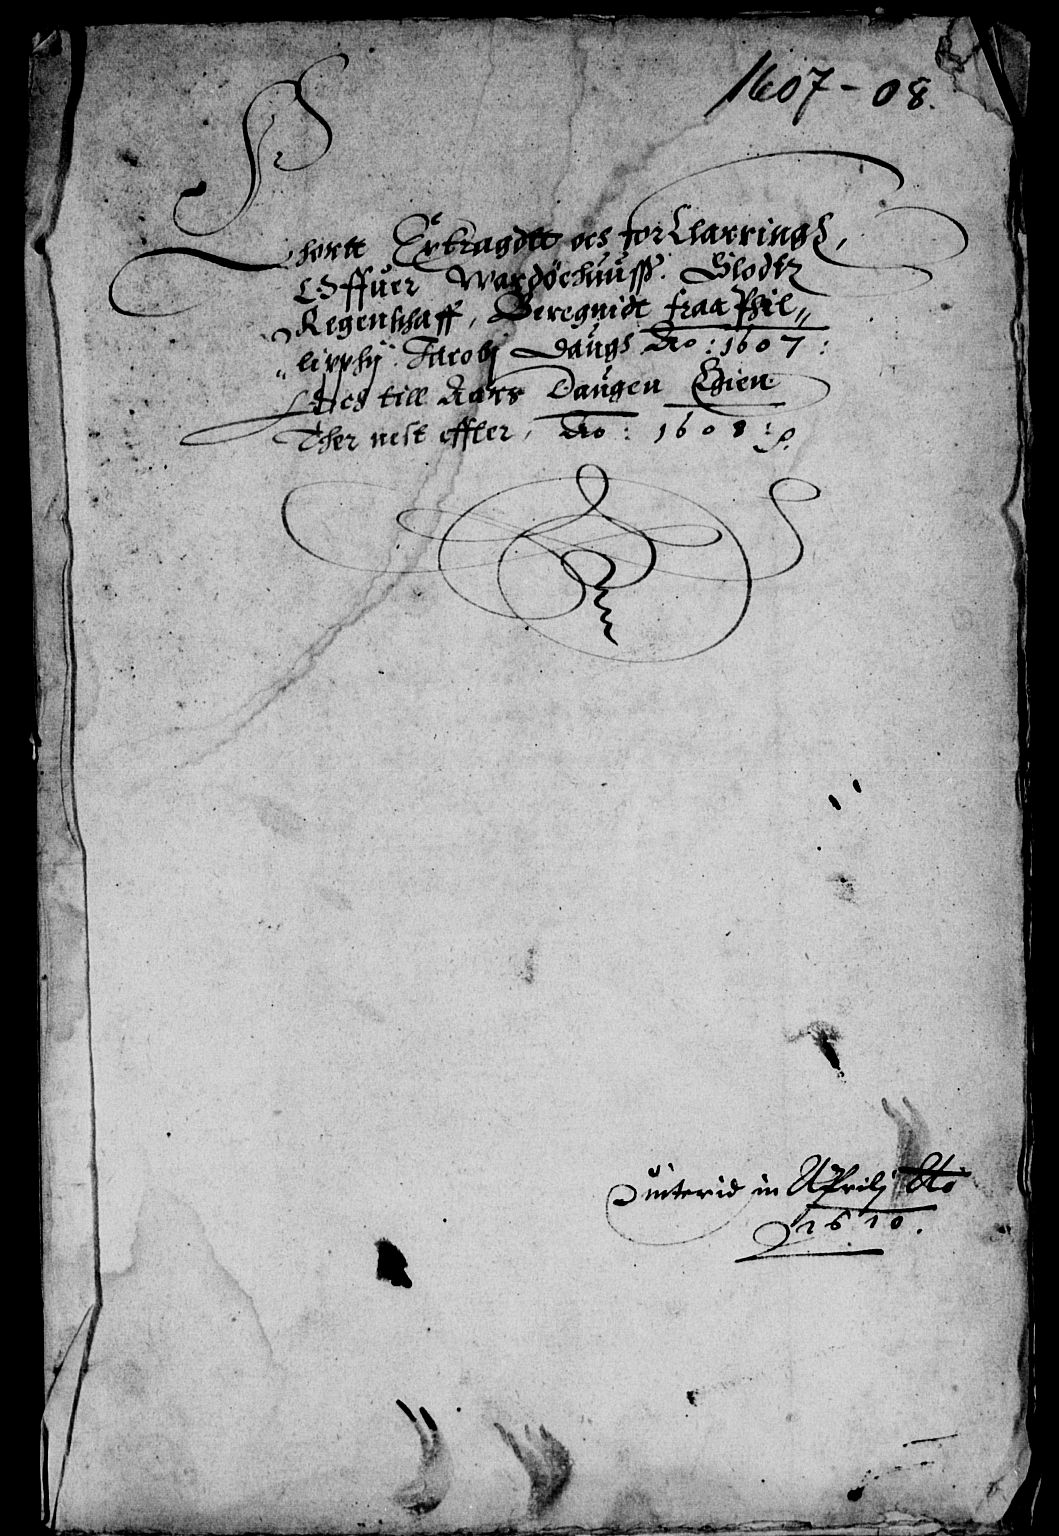 1607 - 08.
Khortt Extragdtt och forklarring,
Offuer Wardøehuuss Slodtz
Regenschaff, Beregnidt fraa Phil„
„lipphij Jacobj Daugs Ao: 1607:
Och till Aars Daugen Egien
Ther nest effter, Ao: 1608:
Quiterid in Aprilj Ao
1610.